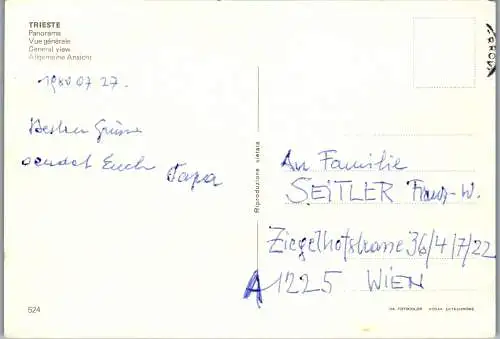 TRIESTE
Panorama
Vue générale
General view
Allgemeine Ansicht
1980 07 27.
Besten Grüsse
sendet Euch
Papa
Riproduzione vietata
An Familie
SEITLER Franz-W.
Ziegelhofstrasse 36/4/7/22
A 1225 WIEN
524